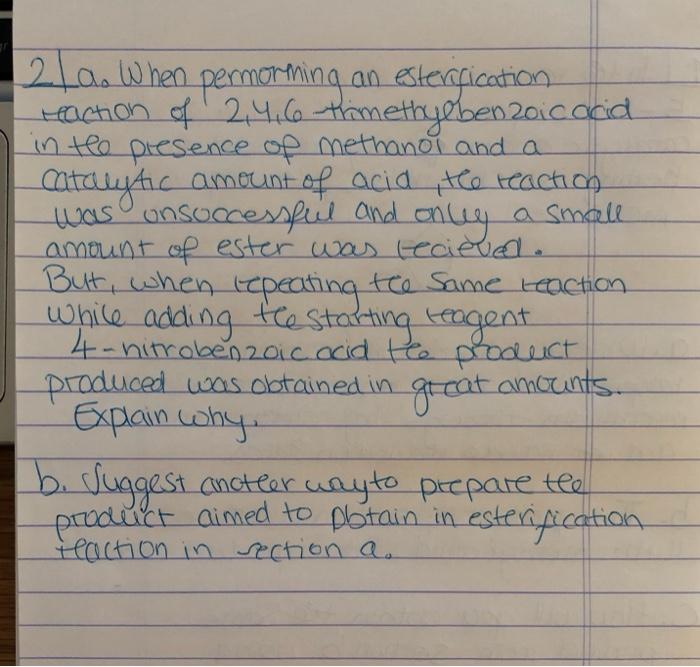 2/a. When permorming an estergication
reaction of 2,4,6-trimethylbenzoic acid
in the presence of methanol and a
catalytic amount of acid, the reaction
was unsuccessful and only a small
amount of ester was recieved.
But, when repeating the same reaction
while adding the starting reagent
4-nitrobenzoic acid the product
produced was obtained in great amounts.
Explain why.
b. Suggest another way to prepare the
product aimed to obtain in esterification
reaction in section a.